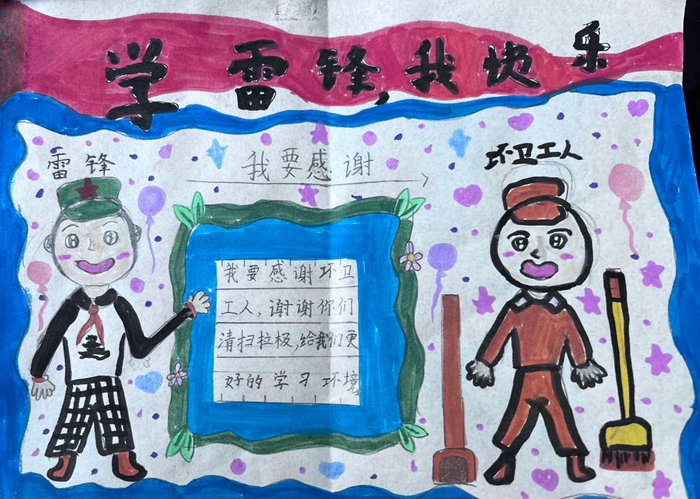 学雷锋,我快乐
雷锋
我要感谢
环卫工人
我要感谢环卫
工人,谢谢你们
清扫拉极,给我们更
好的学习环境